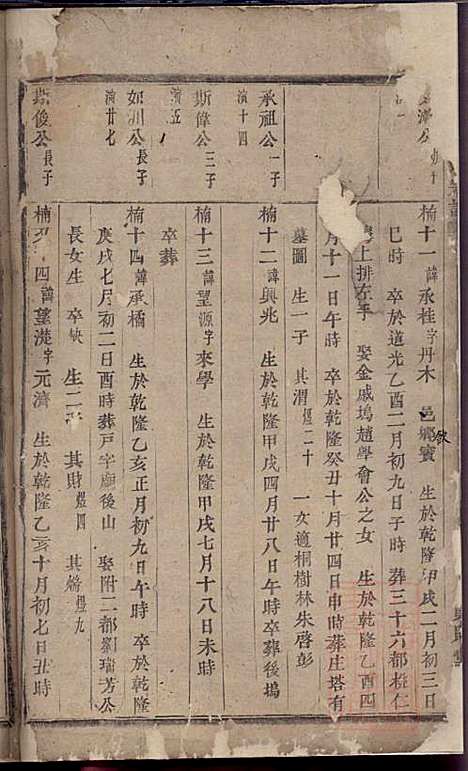 楠十一諱承桂字丹木 邑鄉賓 生於乾隆甲戌二月初三日
巳時 卒於道光乙酉二月初九日子時 葬三十六都 仁
上排左手 娶金戚塢趙學會公之女 生於乾隆乙酉四
月十一日午時 卒於乾隆癸丑十月廿四日申時葬庄塔有
墓圖 生一子 其渭煜二十 一女適桐樹林朱啓彭
承祖公一子
演十四
楠十二諱興兆 生於乾隆甲戌四月廿八日午時卒葬後塢
斯偉公三子
演五
楠十三諱望源字來學 生於乾隆甲戌七月十八日未時
卒葬
如川公長子
演廿七
楠十四諱承橘 生於乾隆乙亥正月初九日午時 卒於乾隆
庚戌七月初二日酉時葬戸字廟後山 娶附二都劉瑞芳公
長女生 卒缺 生二子 其財煜四 其 煜九
斯俊公長子
楠 四諱望漨字元濟 生於乾隆乙亥十月初七日丑時